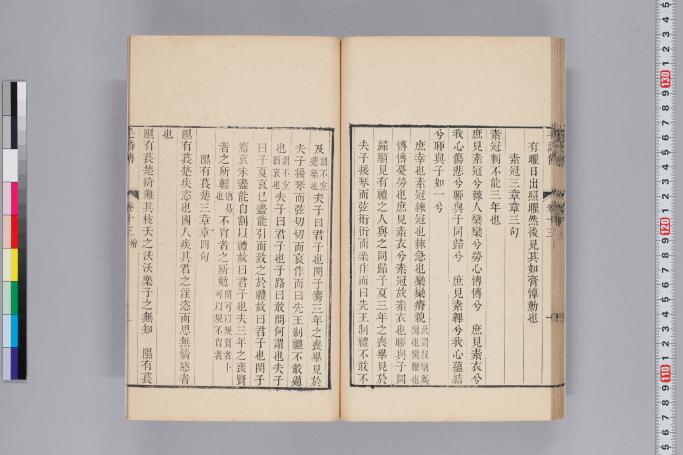 有曜日出照曜然後見其如膏悼動也
素冠三章章三句
素冠刺不能三年也
庶見素冠兮棘人欒欒兮勞心慱慱兮　庶見素衣兮
我心傷悲兮聊與子同歸兮　庶見素韠兮我心蘊結
兮聊與子如一兮
庶幸也素冠練冠也棘急也欒欒瘠貌
慱慱憂勞也庶見素衣兮素冠故素衣也聊與子同
歸願見有禮之人與之同歸子夏三年之喪畢見於
夫子援琴而弦衎衎而樂作而曰先王制禮不敢不
及謂不宜遽樂也夫子曰君子也閔子騫三年之喪畢見於
夫子援琴而弦切切而哀作而曰先王制禮不敢過
也謂不宜猶哀也夫子曰君子也子路曰敢問何謂也夫子
曰子夏哀已盡能引而致之於禮故曰君子也閔子
騫哀未盡能自割以禮故曰君子也夫三年之喪賢
者之所輕也猶易不肖者之所勉閔可以規賢者卜可以規不肖者
隰有萇楚三章章四句
隰有萇楚疾恣也國人疾其君之淫恣而思無情慾者
也
隰有萇楚猗儺其枝夭之沃沃樂子之無知　隰有萇
卷十三 檜